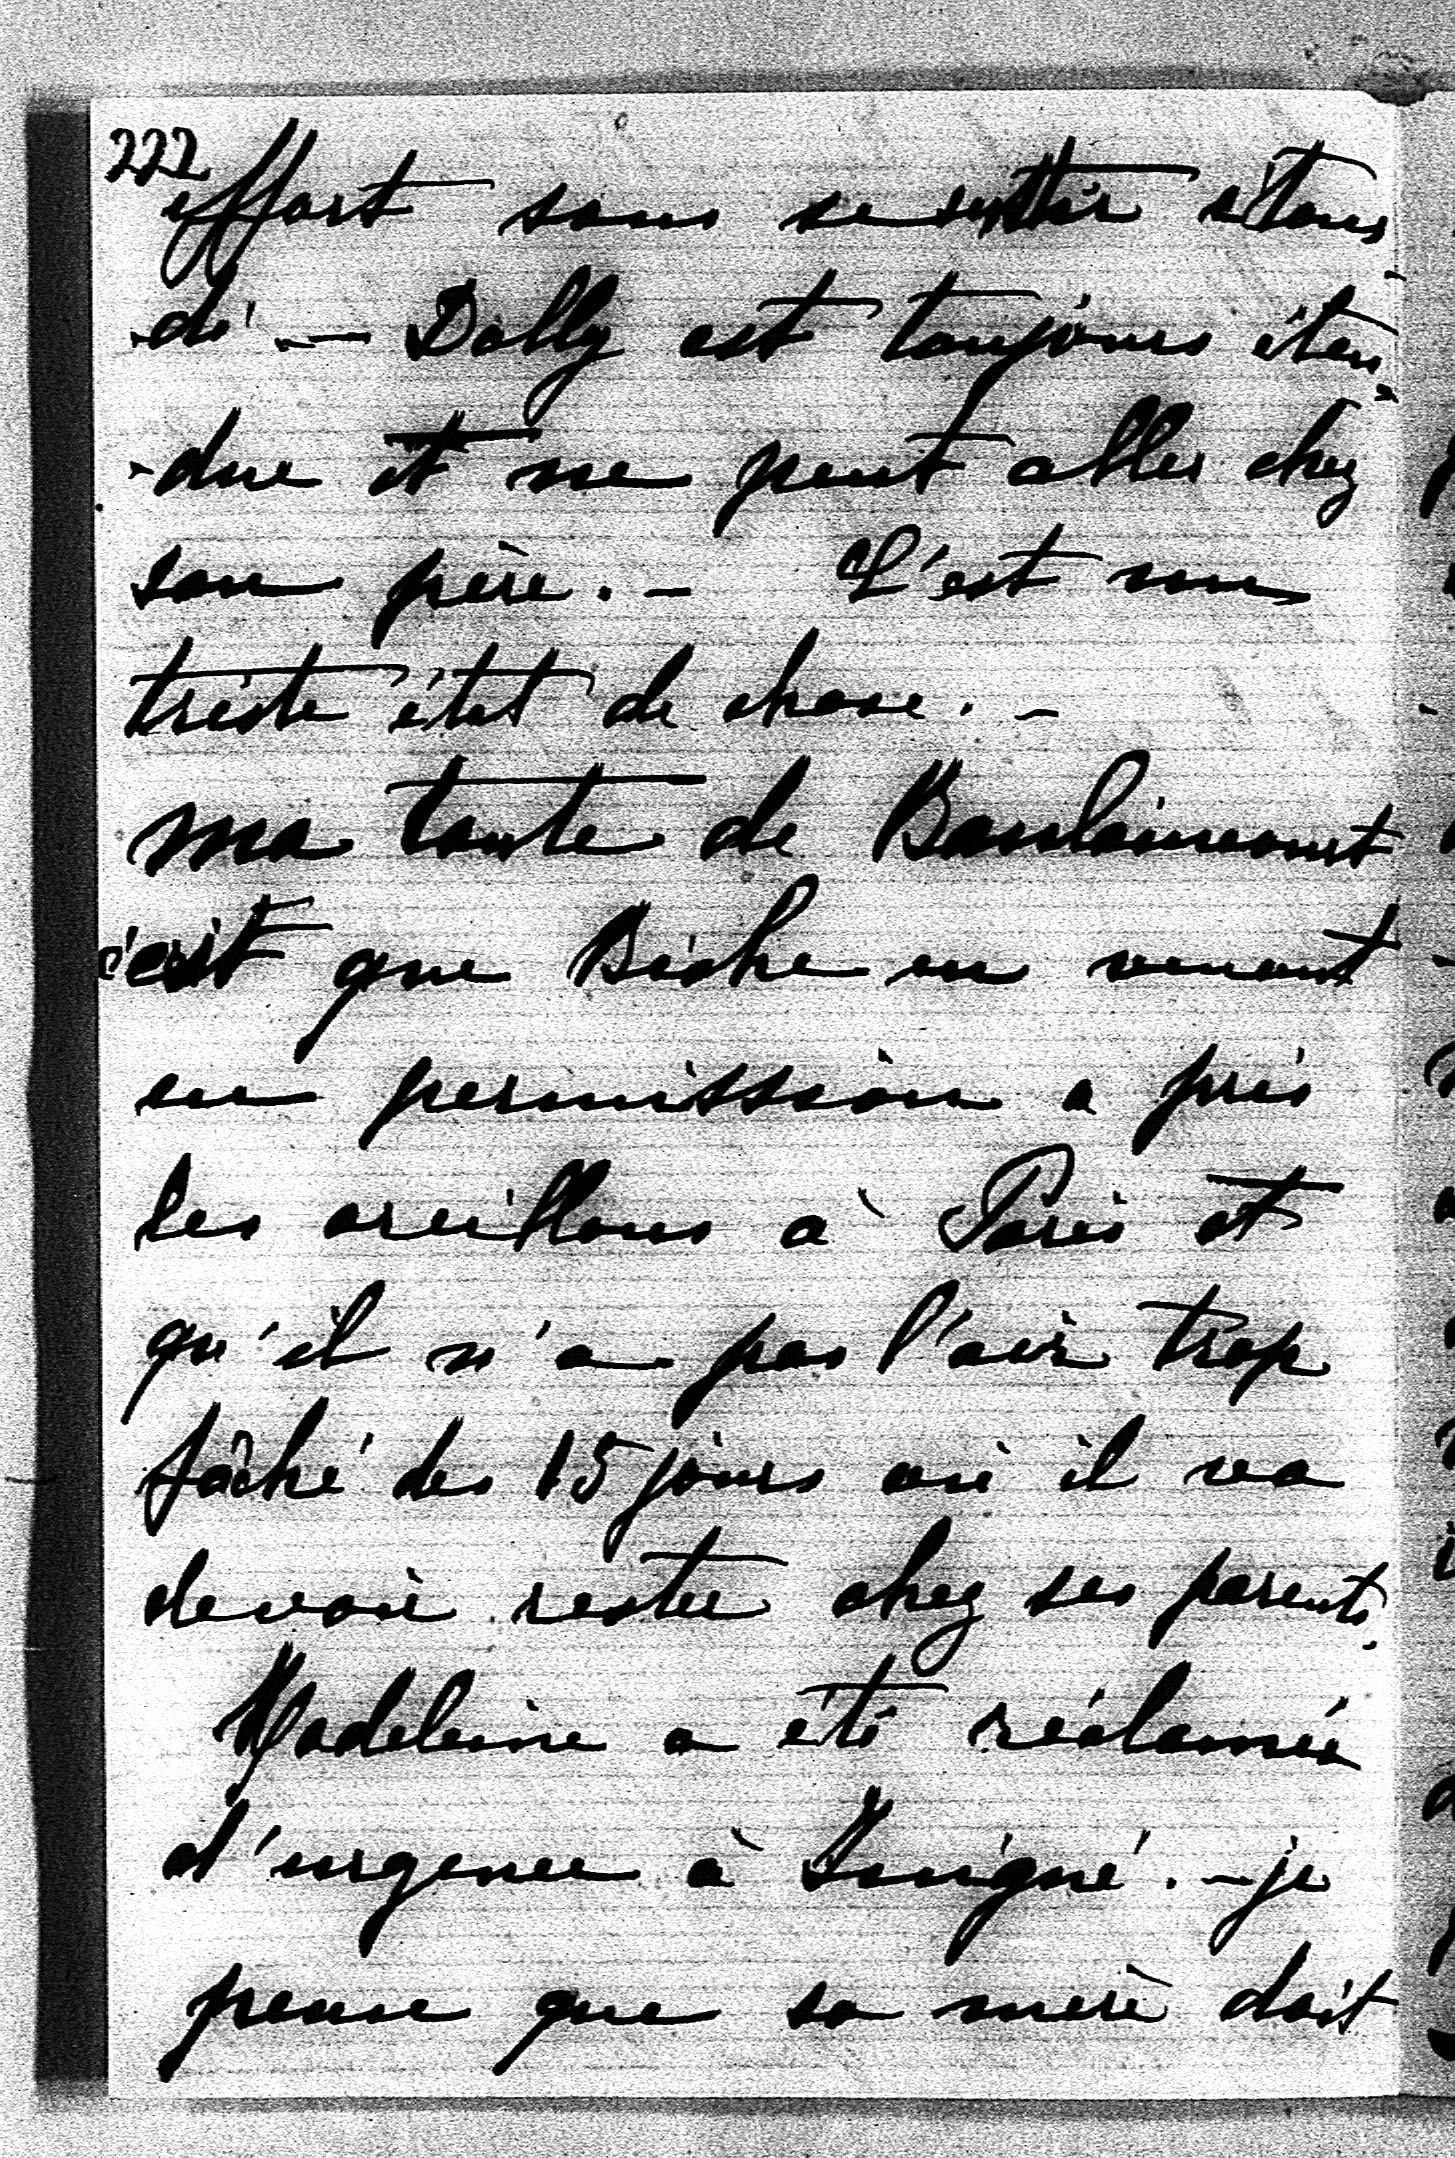 222
effort sans se sentir étour-
-di. — Dolly est toujours éten-
-due et ne peut aller chez
son père. — C'est un
triste état de chose. —
ma tante de Baulaincourt
écrit que Biche en venant
en permission a pris
les oreillons à Paris et
qu'il n'a pas l'air trop
fâché des 15 jours où il va
devoir rester chez ses parents.
Madeleine a été réclamée
d'urgence à Juigné. — je
pense que sa mère doit